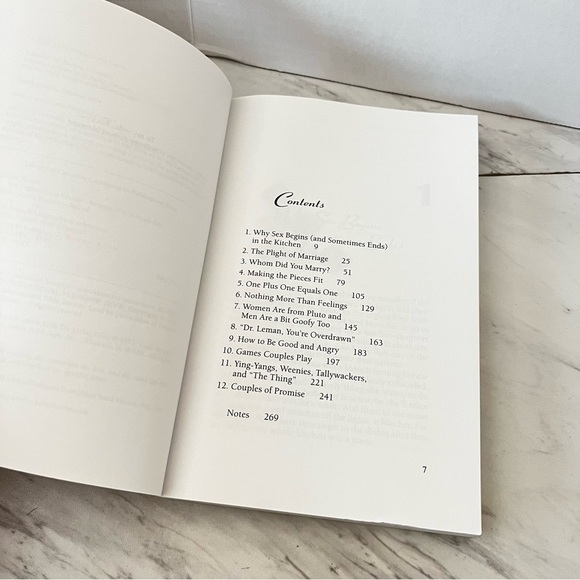 Contents
1. Why Sex Begins (and Sometimes Ends)
in the Kitchen 9
2. The Plight of Marriage 25
3. Whom Did You Marry? 51
4. Making the Pieces Fit 79
5. One Plus One Equals One 105
6. Nothing More Than Feelings 129
7. Women Are from Pluto and
Men Are a Bit Goofy Too 145
8. “Dr. Leman, You’re Overdrawn” 163
9. How to Be Good and Angry 183
10. Games Couples Play 197
11. Ying-Yangs, Weenies, Tallywackers,
and “The Thing” 221
12. Couples of Promise 241
Notes 269
7